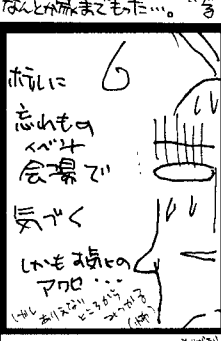 なんとか旅までもった…。
ホテルに
忘れもの
イベント
会場で
気づく
しかも
アクロ…
しかし
ありえない
ところから
みつかる
(怖)